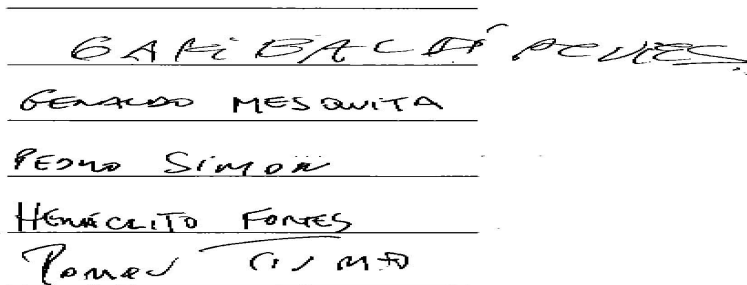 GARIBALDI ALVES
GERALDO MESQUITA
PEDRO SIMON
HERÁCLITO FORTES
Romeu Tuma